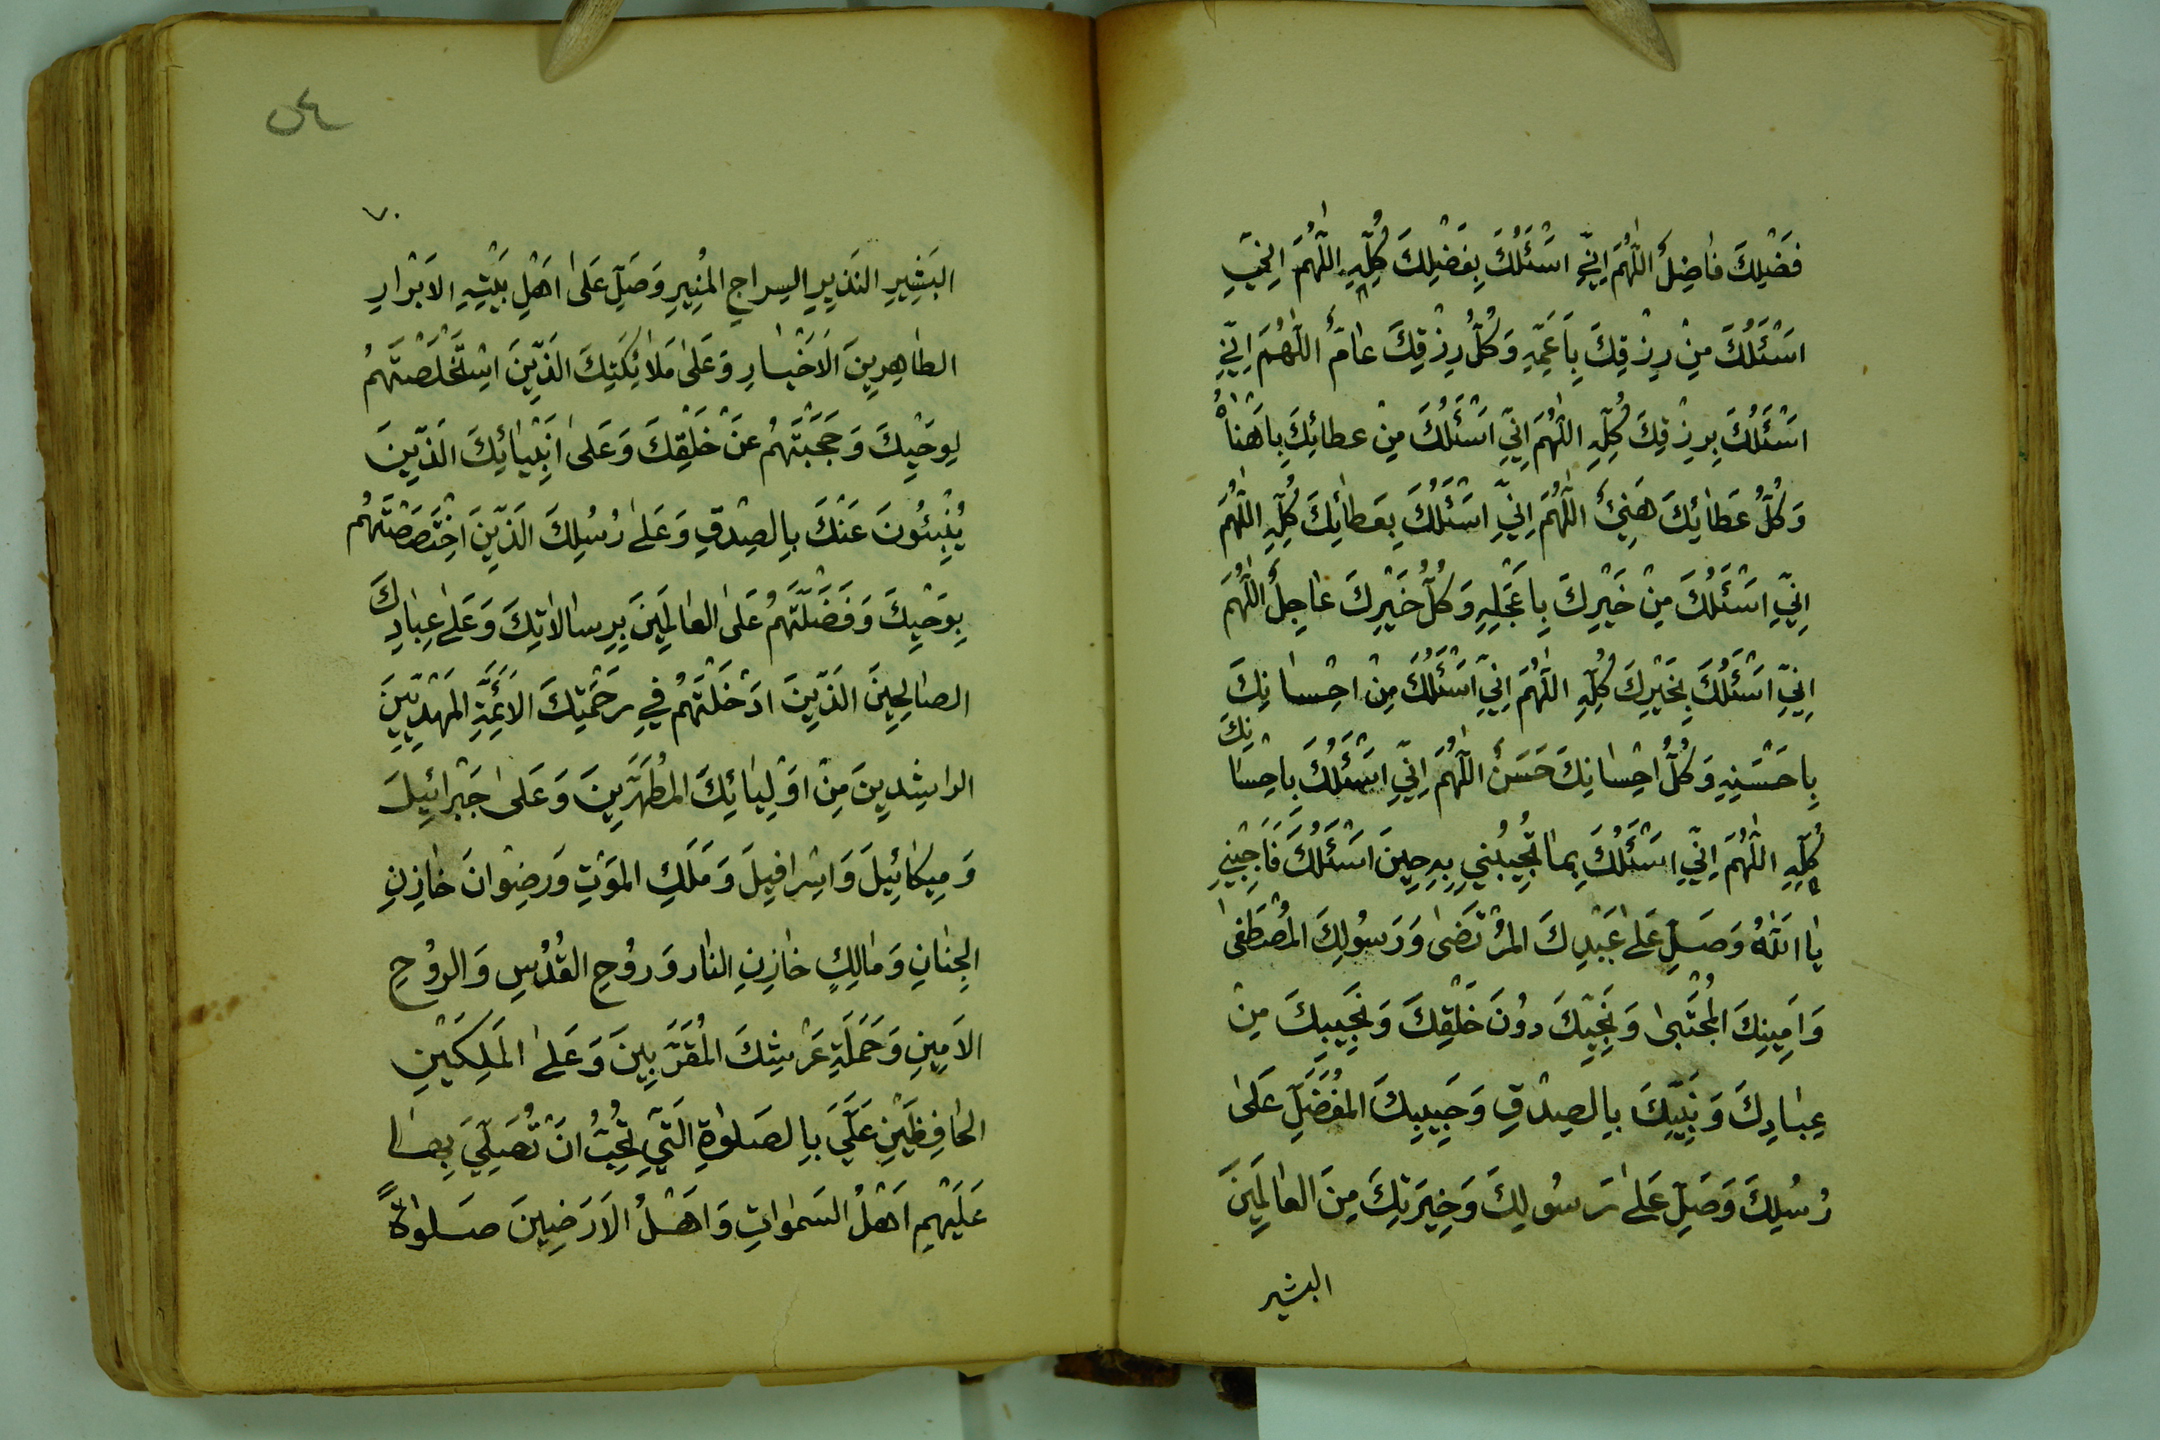 فَضْلِكَ فاضِلٌ اللّٰهُمَّ اِنّي اَسْئَلُكَ بِفَضْلِكَ كُلِّهِ اللّٰهُمَّ اِنّي
اَسْئَلُكَ مِنْ رِزْقِكَ بِاَعَمِّهِ وَكُلُّ رِزْقِكَ عامٌّ اللّٰهُمَّ اِنّي
اَسْئَلُكَ بِرِزْقِكَ كُلِّهِ اللّٰهُمَّ اِنّي اَسْئَلُكَ مِنْ عطائِكَ بِاَهْنَأِهِ
وَكُلُّ عَطائِكَ هَنِيٌ اللّٰهُمَّ اِنّي اَسْئَلُكَ بِعَطائِكَ كُلِّهِ اللّٰهُمَّ
اِنّي اَسْئَلُكَ مِنْ خَيْرِكَ بِاَعْجَلِهِ وَكُلُّ خَيْرِكَ عاجِلٌ اللّٰهُمَّ
اِنّي اَسْئَلُكَ بِخَيْرِكَ كُلِّهِ اللّٰهُمَّ اِنّي اَسْئَلُكَ مِنْ اِحْسانِكَ
بِاَحْسَنِهِ وَكُلُّ اِحْسانِكَ حَسَنٌ اللّٰهُمَّ اِنّي اَسْئَلُكَ بِاِحْسانِكَ
كُلِّهِ اللّٰهُمَّ اِنّي اَسْئَلُكَ بِما تُجِيبُني بِهِ حِينَ اَسْئَلُكَ فَاَجِبْنِي
يا اَللّٰهُ وَصَلِّ عَلىٰ عَبْدِكَ المُرْتَضىٰ وَرَسُولِكَ المُصْطَفىٰ
وَاَمِينِكَ المُجْتَبىٰ وَنَجِيِّكَ دوُنَ خَلْقِكَ وَنَجِيبِكَ مِنْ
عِبادِكَ وَنَبِيِّكَ بِالصِدْقِ وَحَبِيبِكَ المُفَضَّلِ عَلىٰ
رُسُلِكَ وَصَلِّ عَلىٰ رَسُولِكَ وَخِيَرَتِكَ مِنَ العالَمِينَ
البشير
٧٠
البَشِيرِ النَذيرِ السِراجِ المُنِيرِ وَصَلِّ عَلىٰ اَهْلِ بَيْتِهِ الاَبْرارِ
الطاهِرِينَ الاَخْيارِ وَعَلىٰ مَلائِكَتِكَ الَذّينَ اسْتَخْلَصْتَهُمْ
لِوَحْيِكَ وَحَجَبْتَهُمْ عَنْ خَلْقِكَ وَعَلىٰ اَنْبِيائِكَ الَذّينَ
يُنْبِئُونَ عَنْكَ بِالصِدْقِ وَعَلىٰ رُسُلِكَ الَذّينَ اخْتَصَصْتَهُمْ
بِوَحْيِكَ وَفَضَّلْتَهُمْ عَلىٰ العالَمِينَ بِرِسالاتِكَ وَعَلىٰ عِبادِكَ
الصالِحِينَ الَذّينَ اَدْخَلْتَهُمْ فِي رَحْمَتِكَ الاَئِمَّةِ المَهْدِيّينَ
الراشِدِينَ مِنْ اَوْلِيائِكَ المُطَهَّرِينَ وَعَلىٰ جَبْرائِيلَ
وَمِيكائِيلَ وَاِسْرافِيلَ وَمَلَكِ المَوْتِ وَرِضْوانَ خازِنِ
الجِنانِ وَمالِكٍ خازِنِ النار وَروُحِ القُدُسِ وَالروُحِ
الاَمِينِ وَحَمَلَةِ عَرْشِكَ المُقَرَّبِينَ وَعَلىٰ المَلَكَيْنِ
الحافِظَيْنِ عَلَيَّ بِالصَلوٰةِ الَتّي تُحِبُّ اَنْ تُصَلِّيَ بِها
عَلَيْهِم اَهْلُ السَمٰواتِ وَاَهْلُ الاَرَضِينَ صَلوٰةً